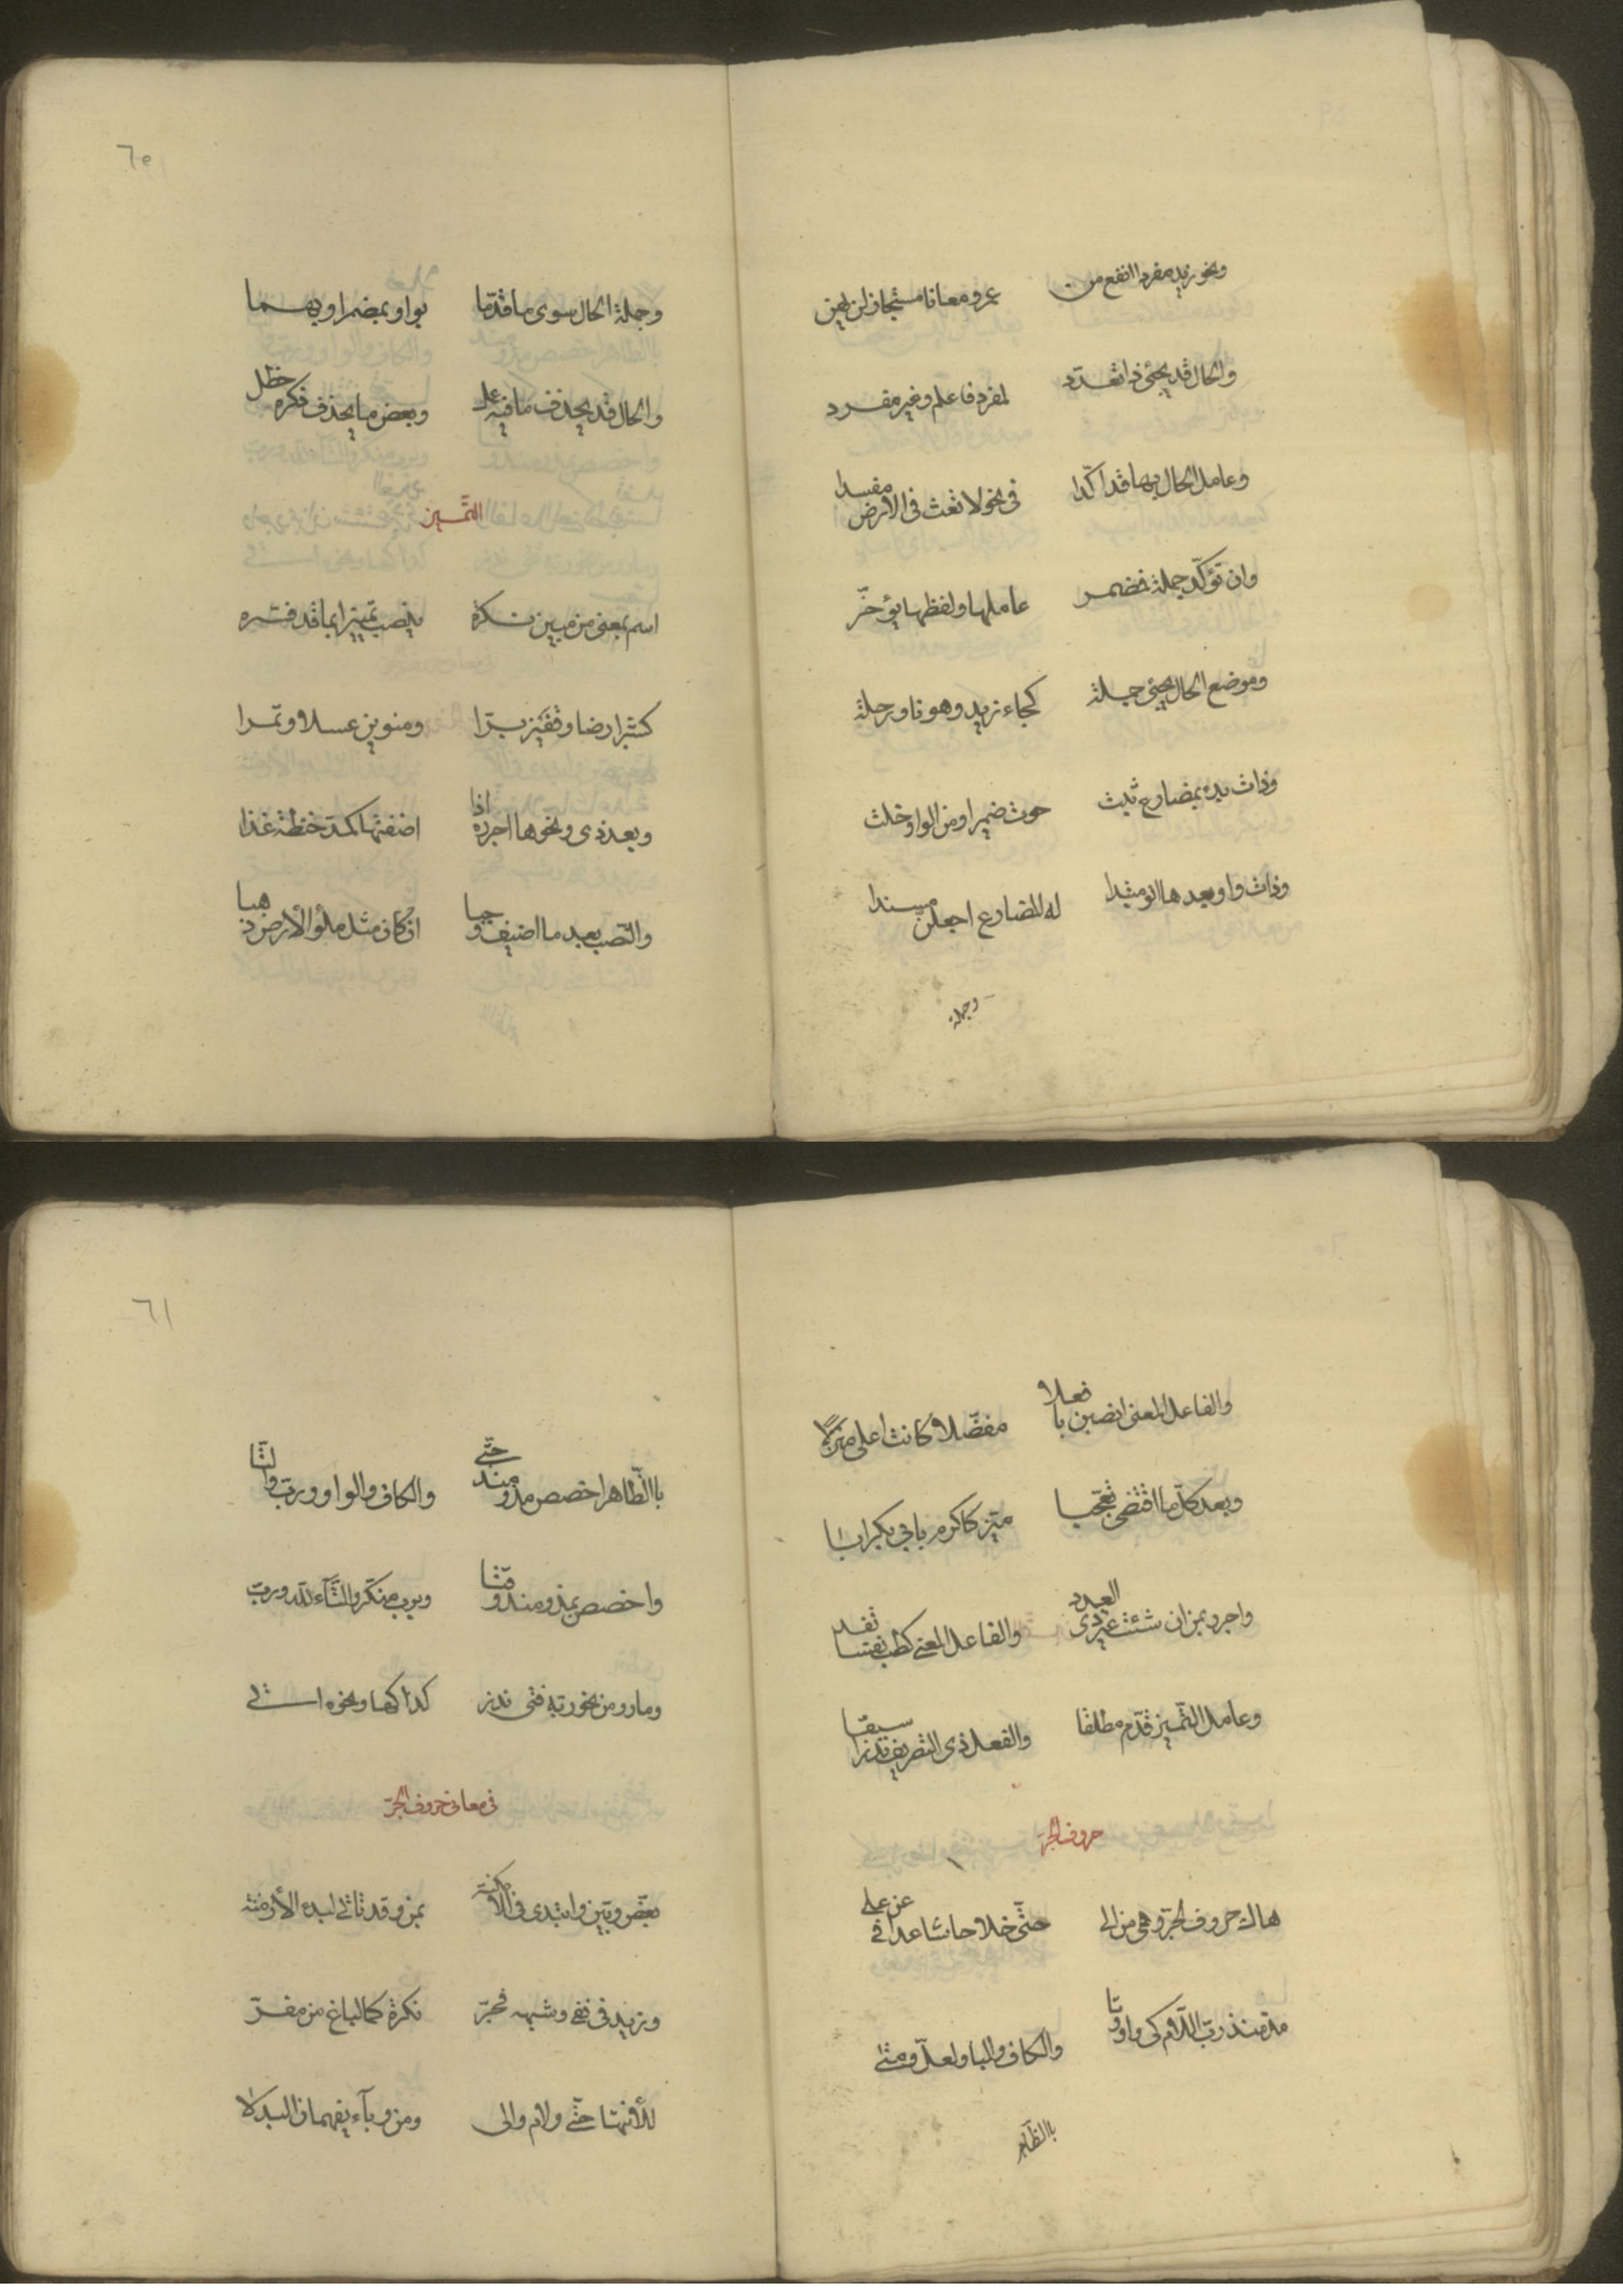 ونحو زيد مفردا انفع من عمرو معانا مستجاز لن يهن
والحال قد يجئ ذا تعدد لمفرد فاعلم وغير مفرد
وعامل الحال بها قد اكّدا فى نحو لا تعث فى الارض مفسدا
وان تؤكّد جملة فمضمر عاملها ولفظها يؤخّر
وموضع الحال يجئ جملة كجاء زيد وهو ناو رحلة
وذات بدء بمضارع ثبت حوت ضميرا ومن الواو خلت
وذات واو بعدها انو مبتدا له المضارع اجعلنّ مسندا
وجملة
٦٥
وجملة الحال سوى ما قدّما بواو بمضمر او بهما
والحال قد يحذف ما فيه عمل وبعض ما يحذف ذكره حظل
التّميز
اسم بمعنى من مبين نكرة ينصب تميزا بما قد فسّره
كشبر ارضا وقفيز برّا ومنوين عسلا وتمرا
وبعد ذى ونحوها اجرره اذا اضفتها كمدّ حنطة غذا
والنّصب بعد ما اضيف وجبا ان كان مثل ملؤ الأرض ذهبا
والفاعل المعنى انصبن بافعلا مفضّلا كانت اعلى منزلا
وبعد كلّ ما اقتضى تعجّبا ميّز كاكرم بابى بكر ابا
واجرر بمن ان شئت غير ذى العدد والفاعل المعنى كطب نفسا تفد
وعامل التّميز قدّم مطلقا والفعل ذى التصريف نذرا سبقا
حروف الجرّ
هاك حروف الجرّ وهى من الى حتّى خلا حاشا عدا فى عن على
مذ منذ ربّ اللّام كى واو وتا والكاف والبا ولعلّ ومتى
باالظّاهر
٦١
باالظّاهر اخصص مذ ومنذ حتّى والكاف والواو وربّ والتّا
واخصص بمذ ومنذ وقتا وبرب منكّر والتّآء للّه وربّ
وما رو من نحو ربّه فتى نذر كذا كها ونحوه اتى
فى معانى حروف الجرّ
بعّض وبيّن وابتدى فى الأمكنة بمن وقد تاتى لبدء الأزمنة
وزيد فى نفى وشبهه فجرّ نكرة كما لباغ من مفرّ
للأنتها حتّى ولام والى ومن وبآء يفهمان البدلا